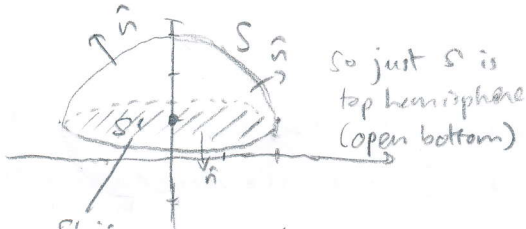 n̂
S
n̂
So just S is
top hemisphere
(open bottom)
S'
n̂
S' is